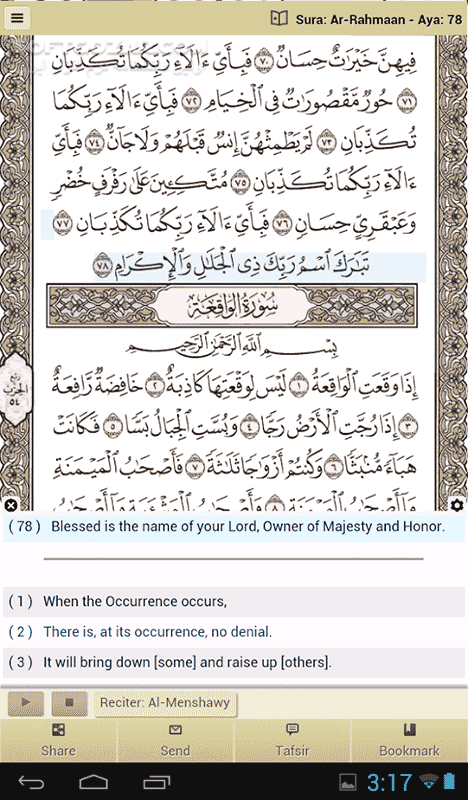 Sura: Ar-Rahmaan - Aya: 78
فِيهِنَّ خَيْرَٰتٌ حِسَانٌ ٧٠ فَبِأَىِّ ءَالَآءِ رَبِّكُمَا تُكَذِّبَانِ
٧١ حُورٌ مَّقْصُورَٰتٌ فِى ٱلْخِيَامِ ٧٢ فَبِأَىِّ ءَالَآءِ رَبِّكُمَا
تُكَذِّبَانِ ٧٣ لَمْ يَطْمِثْهُنَّ إِنسٌ قَبْلَهُمْ وَلَا جَآنٌّ ٧٤ فَبِأَىِّ
ءَالَآءِ رَبِّكُمَا تُكَذِّبَانِ ٧٥ مُتَّكِـِٔينَ عَلَىٰ رَفْرَفٍ خُضْرٍ
وَعَبْقَرِىٍّ حِسَانٍ ٧٦ فَبِأَىِّ ءَالَآءِ رَبِّكُمَا تُكَذِّبَانِ ٧٧
تَبَٰرَكَ ٱسْمُ رَبِّكَ ذِى ٱلْجَلَٰلِ وَٱلْإِكْرَامِ ٧٨
سُورَةُ الوَاقِعَة
بِسْمِ ٱللَّهِ ٱلرَّحْمَٰنِ ٱلرَّحِيمِ
إِذَا وَقَعَتِ ٱلْوَاقِعَةُ ١ لَيْسَ لِوَقْعَتِهَا كَاذِبَةٌ ٢ خَافِضَةٌ رَّافِعَةٌ
٣ إِذَا رُجَّتِ ٱلْأَرْضُ رَجًّا ٤ وَبُسَّتِ ٱلْجِبَالُ بَسًّا ٥ فَكَانَتْ
هَبَآءً مُّنۢبَثًّا ٦ وَكُنتُمْ أَزْوَٰجًا ثَلَٰثَةً ٧ فَأَصْحَٰبُ ٱلْمَيْمَنَةِ
الحزب
٥٤
(78) Blessed is the name of your Lord, Owner of Majesty and Honor.
(1) When the Occurrence occurs,
(2) There is, at its occurrence, no denial.
(3) It will bring down [some] and raise up [others].
Reciter: Al-Menshawy
Share Send Tafsir Bookmark
3:17